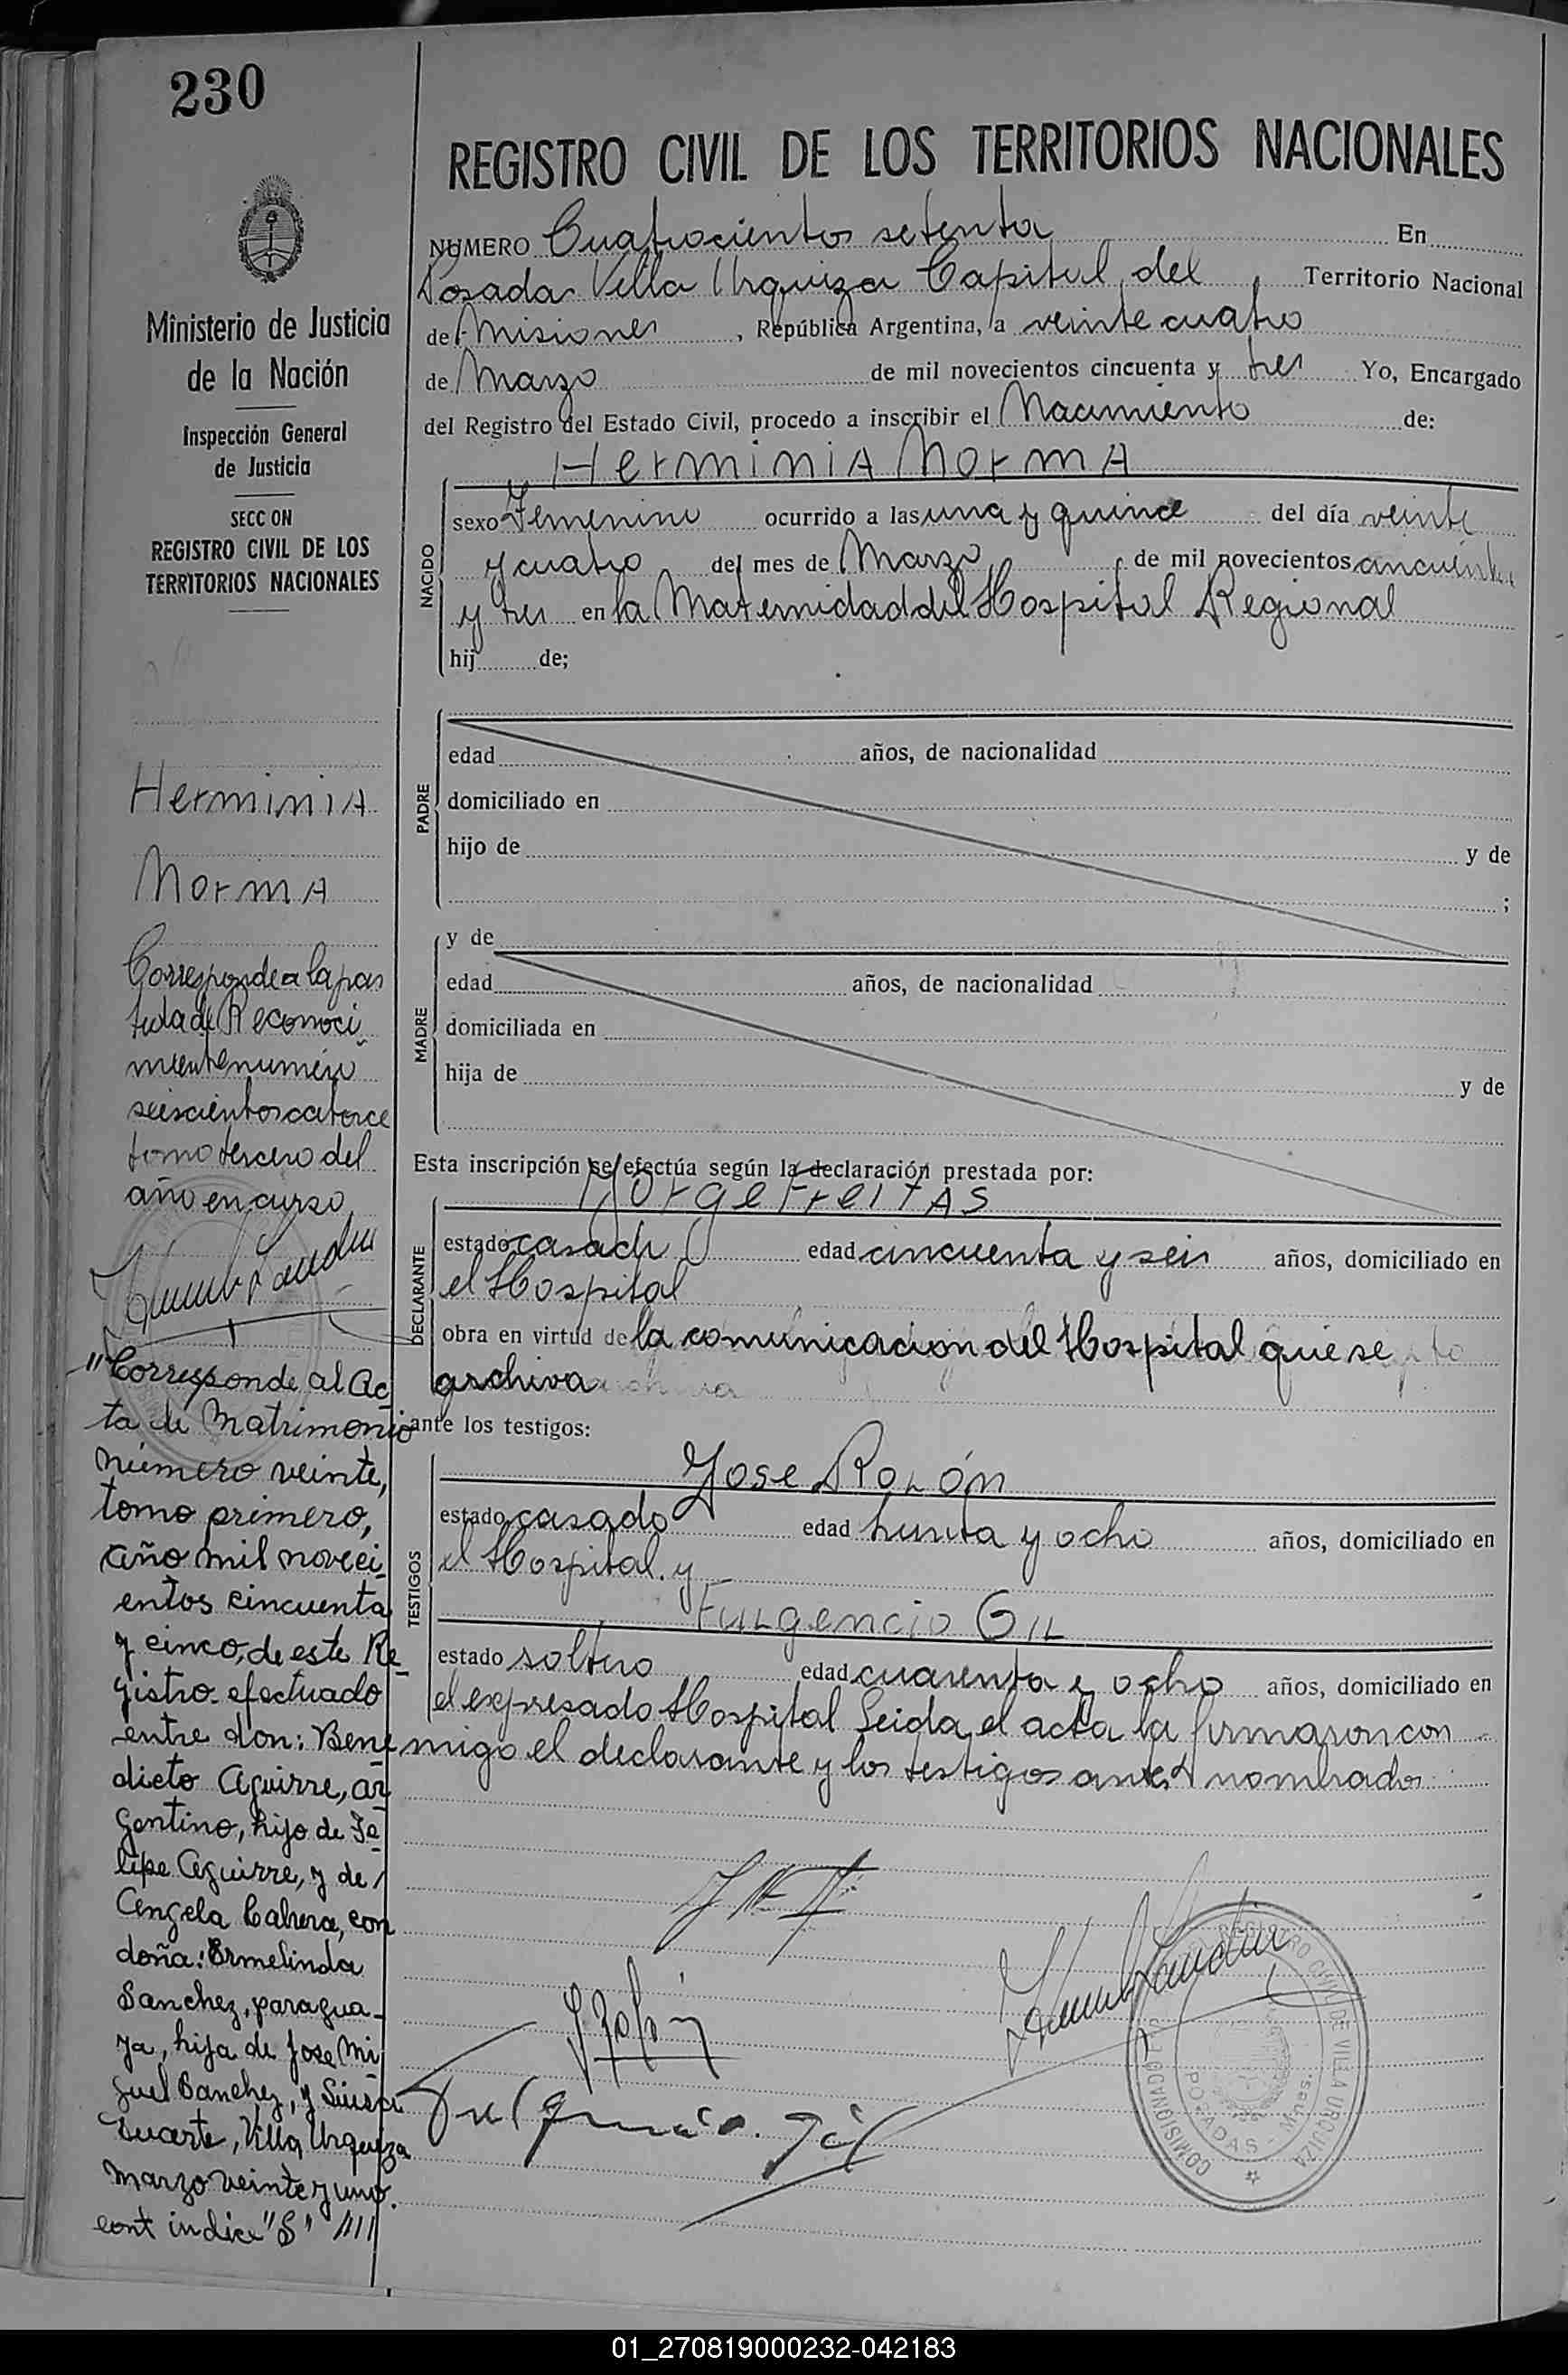 230
Ministerio de Justicia
de la Nación
Inspección General
de Justicia
SECC ON
REGISTRO CIVIL DE LOS
TERRITORIOS NACIONALES
Herminia
Norma
Corresponde a la par
tida de Reconoci
miento número
seiscientos catorce
tomo tercero del
año en curso
"Corresponde al Ac
ta de Matrimonio
número veinte,
tomo primero,
año mil noveci
entos cincuenta
y cinco, de este Re
gistro efectuado
entre don: Bene
dicto Aguirre, ar
gentino, hijo de Fe
lipe Aguirre, y de
Angela Cabrera, con
doña: Ermelinda
Sanchez, paragua
ya, hija de Jose Mi
guel Sanchez, y
Duarte, Villa Urquiza
Marzo veinte y uno.
cont indice "S" ////
REGISTRO CIVIL DE LOS TERRITORIOS NACIONALES
NUMERO Cuatrocientos setenta En
Posadas Villa Urquiza Capital del Territorio Nacional
de Misiones, República Argentina, a veinte cuatro
de Marzo de mil novecientos cincuenta y tres Yo, Encargado
del Registro del Estado Civil, procedo a inscribir el Nacimiento de:
Herminia Norma
NACIDO
sexo Femenino ocurrido a las una y quince del día veinte
y cuatro del mes de Marzo de mil novecientos cincuenta
y tres en la Maternidad del Hospital Regional
hij de;
PADRE
edad años, de nacionalidad
domiciliado en
hijo de y de
;
MADRE
y de
edad años, de nacionalidad
domiciliada en
hija de y de
Esta inscripción se efectúa según la declaración prestada por:
Jorge Freitas
DECLARANTE
estado casado edad cincuenta y seis años, domiciliado en
el Hospital
obra en virtud de la comunicacion del Hospital que se
archiva
ante los testigos:
Jose Rolón
TESTIGOS
estado casado edad treinta y ocho años, domiciliado en
el Hospital. y
Fulgencio Gil
estado soltero edad cuarenta y ocho años, domiciliado en
el expresado Hospital Leida el acta la firmaron con
migo el declarante y los testigos antes nombrados
J Rolón
Fulgencio. Gil
REGISTRO CIVIL DE VILLA URQUIZA
POSADAS - Mnes.
COMISIONADO
01_270819000232-042183